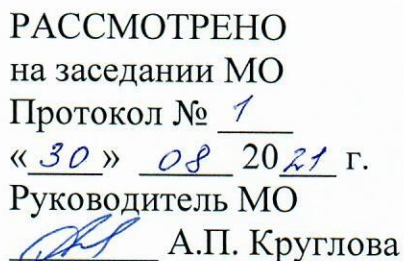 РАССМОТРЕНО
на заседании МО
Протокол № 1
«30» 08 2021 г.
Руководитель МО
А.П. Круглова